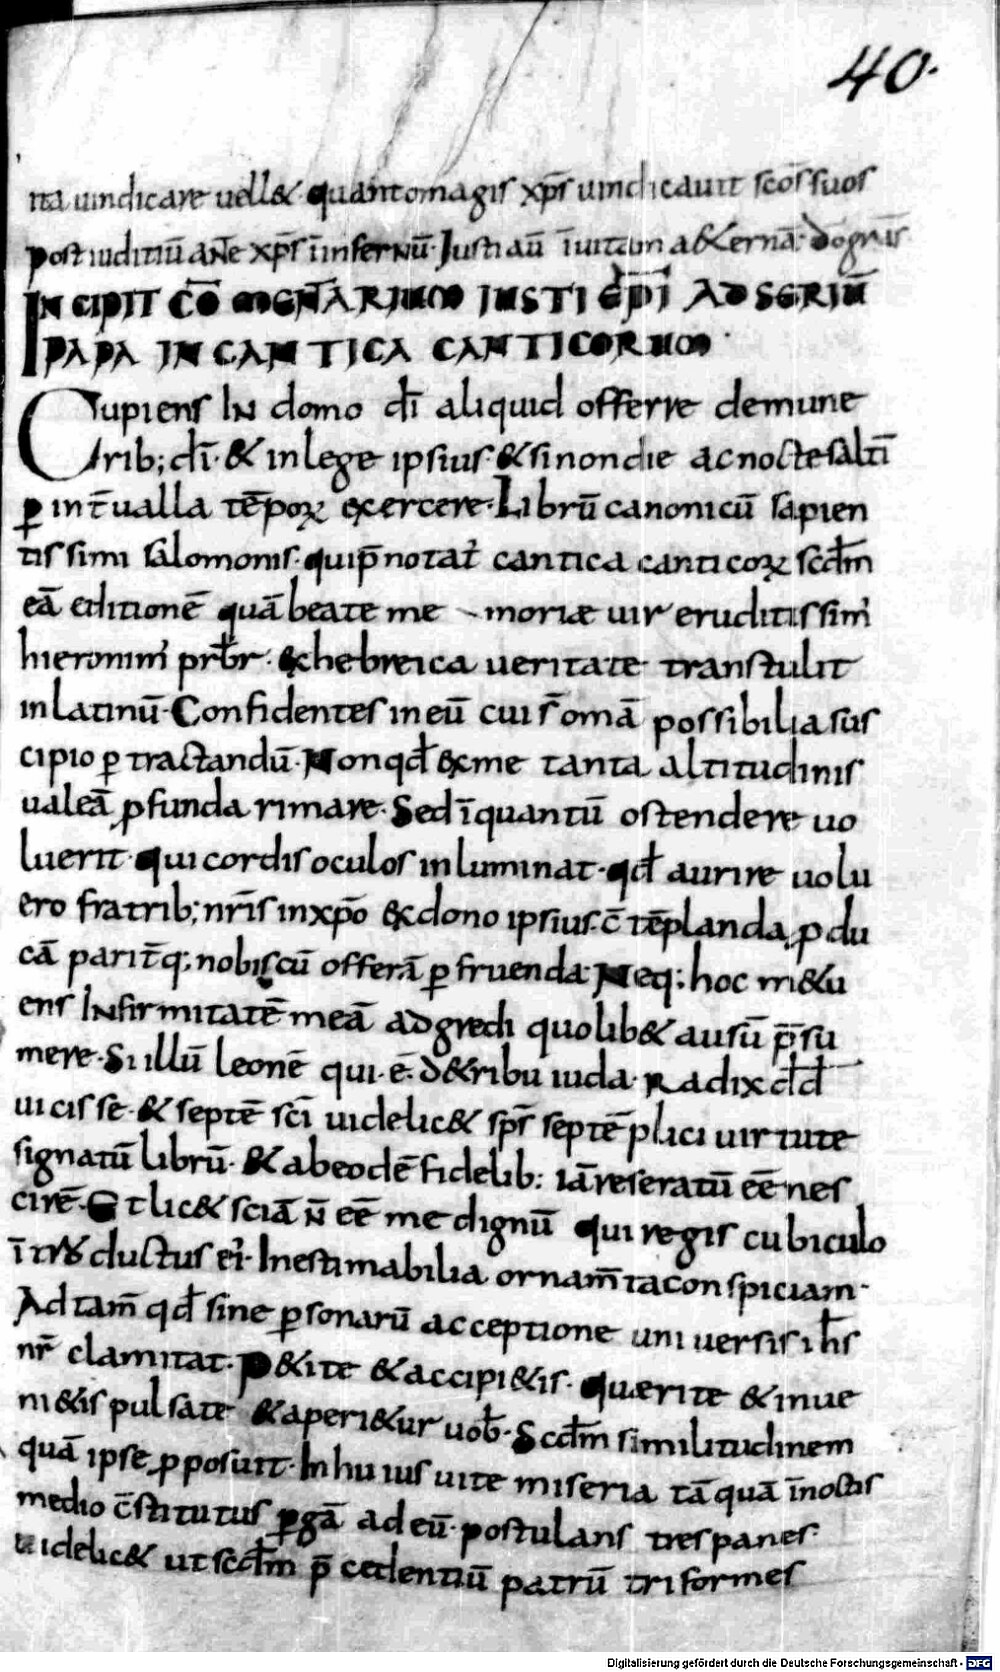 40.
ita uindicare uell& quantomagis xp̄s uindicauit sc̄os suos
post iuditiū añe xp̄s īinfernū. Justi aū īuitam a&ernā. dō gr̄as
INCIPIT CŌMENTARIUM IUSTI EP̄I AD SERIŪ
PAPA IN CANTICA CANTICORUM.
Cupiens IN domo dī aliquid offerre demune
rib; dī. & in lege ipsius. & si non die ac nocte saltī
ꝑ int̄ualla tēpoꝝ excercere. Librū canonicū sapien
tissimi salomonis. qui p̄notat᷑ cantica canticoꝝ scd̄m
eā editionē quā beate me moriæ uir eruditissim᷒
hieronim᷒ prb̄r. ex hebreica ueritate transtulit
in latinū. Confidentes in eū cui s̄ omā possibilia sus
cipio ꝑ tractandū. Non qd̄ ex me tanta altitudinis
ualeā ꝓfunda rimare. Sed īquantū ostendere uo
luerit. qui cordis oculos inluminat. qd̄ aurire uolu
ero fratrib; nr̄is in xp̄o ex dono ipsius. c̄tēplanda ꝓdu
cā parit̄q; nobiscū offerā ꝑfruenda. Neq; hoc m&u
ens Infirmitatē meā adgredi quolib& ausū p̄su
mere. Si illū leonē qui. ē. d&ribu iuda. Radix dd̄
uicisse. & septē sc̄i uidelic& sp̄s septēplici uirtute
signatū librū. & ab eodē fidelib; iā reseratū eē nes
cirē. Et lic& sciā n̄ eē me dignū qui regis cubiculo
ītroductus ei᷒. Inestimabilia ornam̄ta conspiciam.
Ad tam̄ qd̄ sine ꝑsonarū acceptione uniuersis ih̄s
nr̄ clamitat. P&ite & accipi&is. Quærite & inue
ni&is pulsate & aperi&ur uob̄. Scd̄m similitudinem
quā ipse ꝓposuit. In huius uite miseria tāquā īnoctis
medio c̄stitutus ꝑgā ad eū. postulans tres panes.
uidelic& ut scd̄m p̄cedentiū patrū triformes
Digitalisierung gefördert durch die Deutsche Forschungsgemeinschaft - DFG